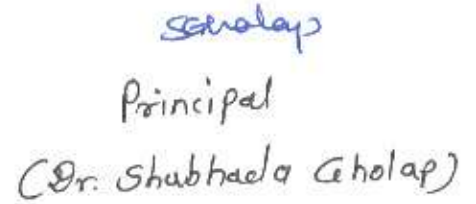 SGholap
Principal
(Dr. Shubhada Gholap)